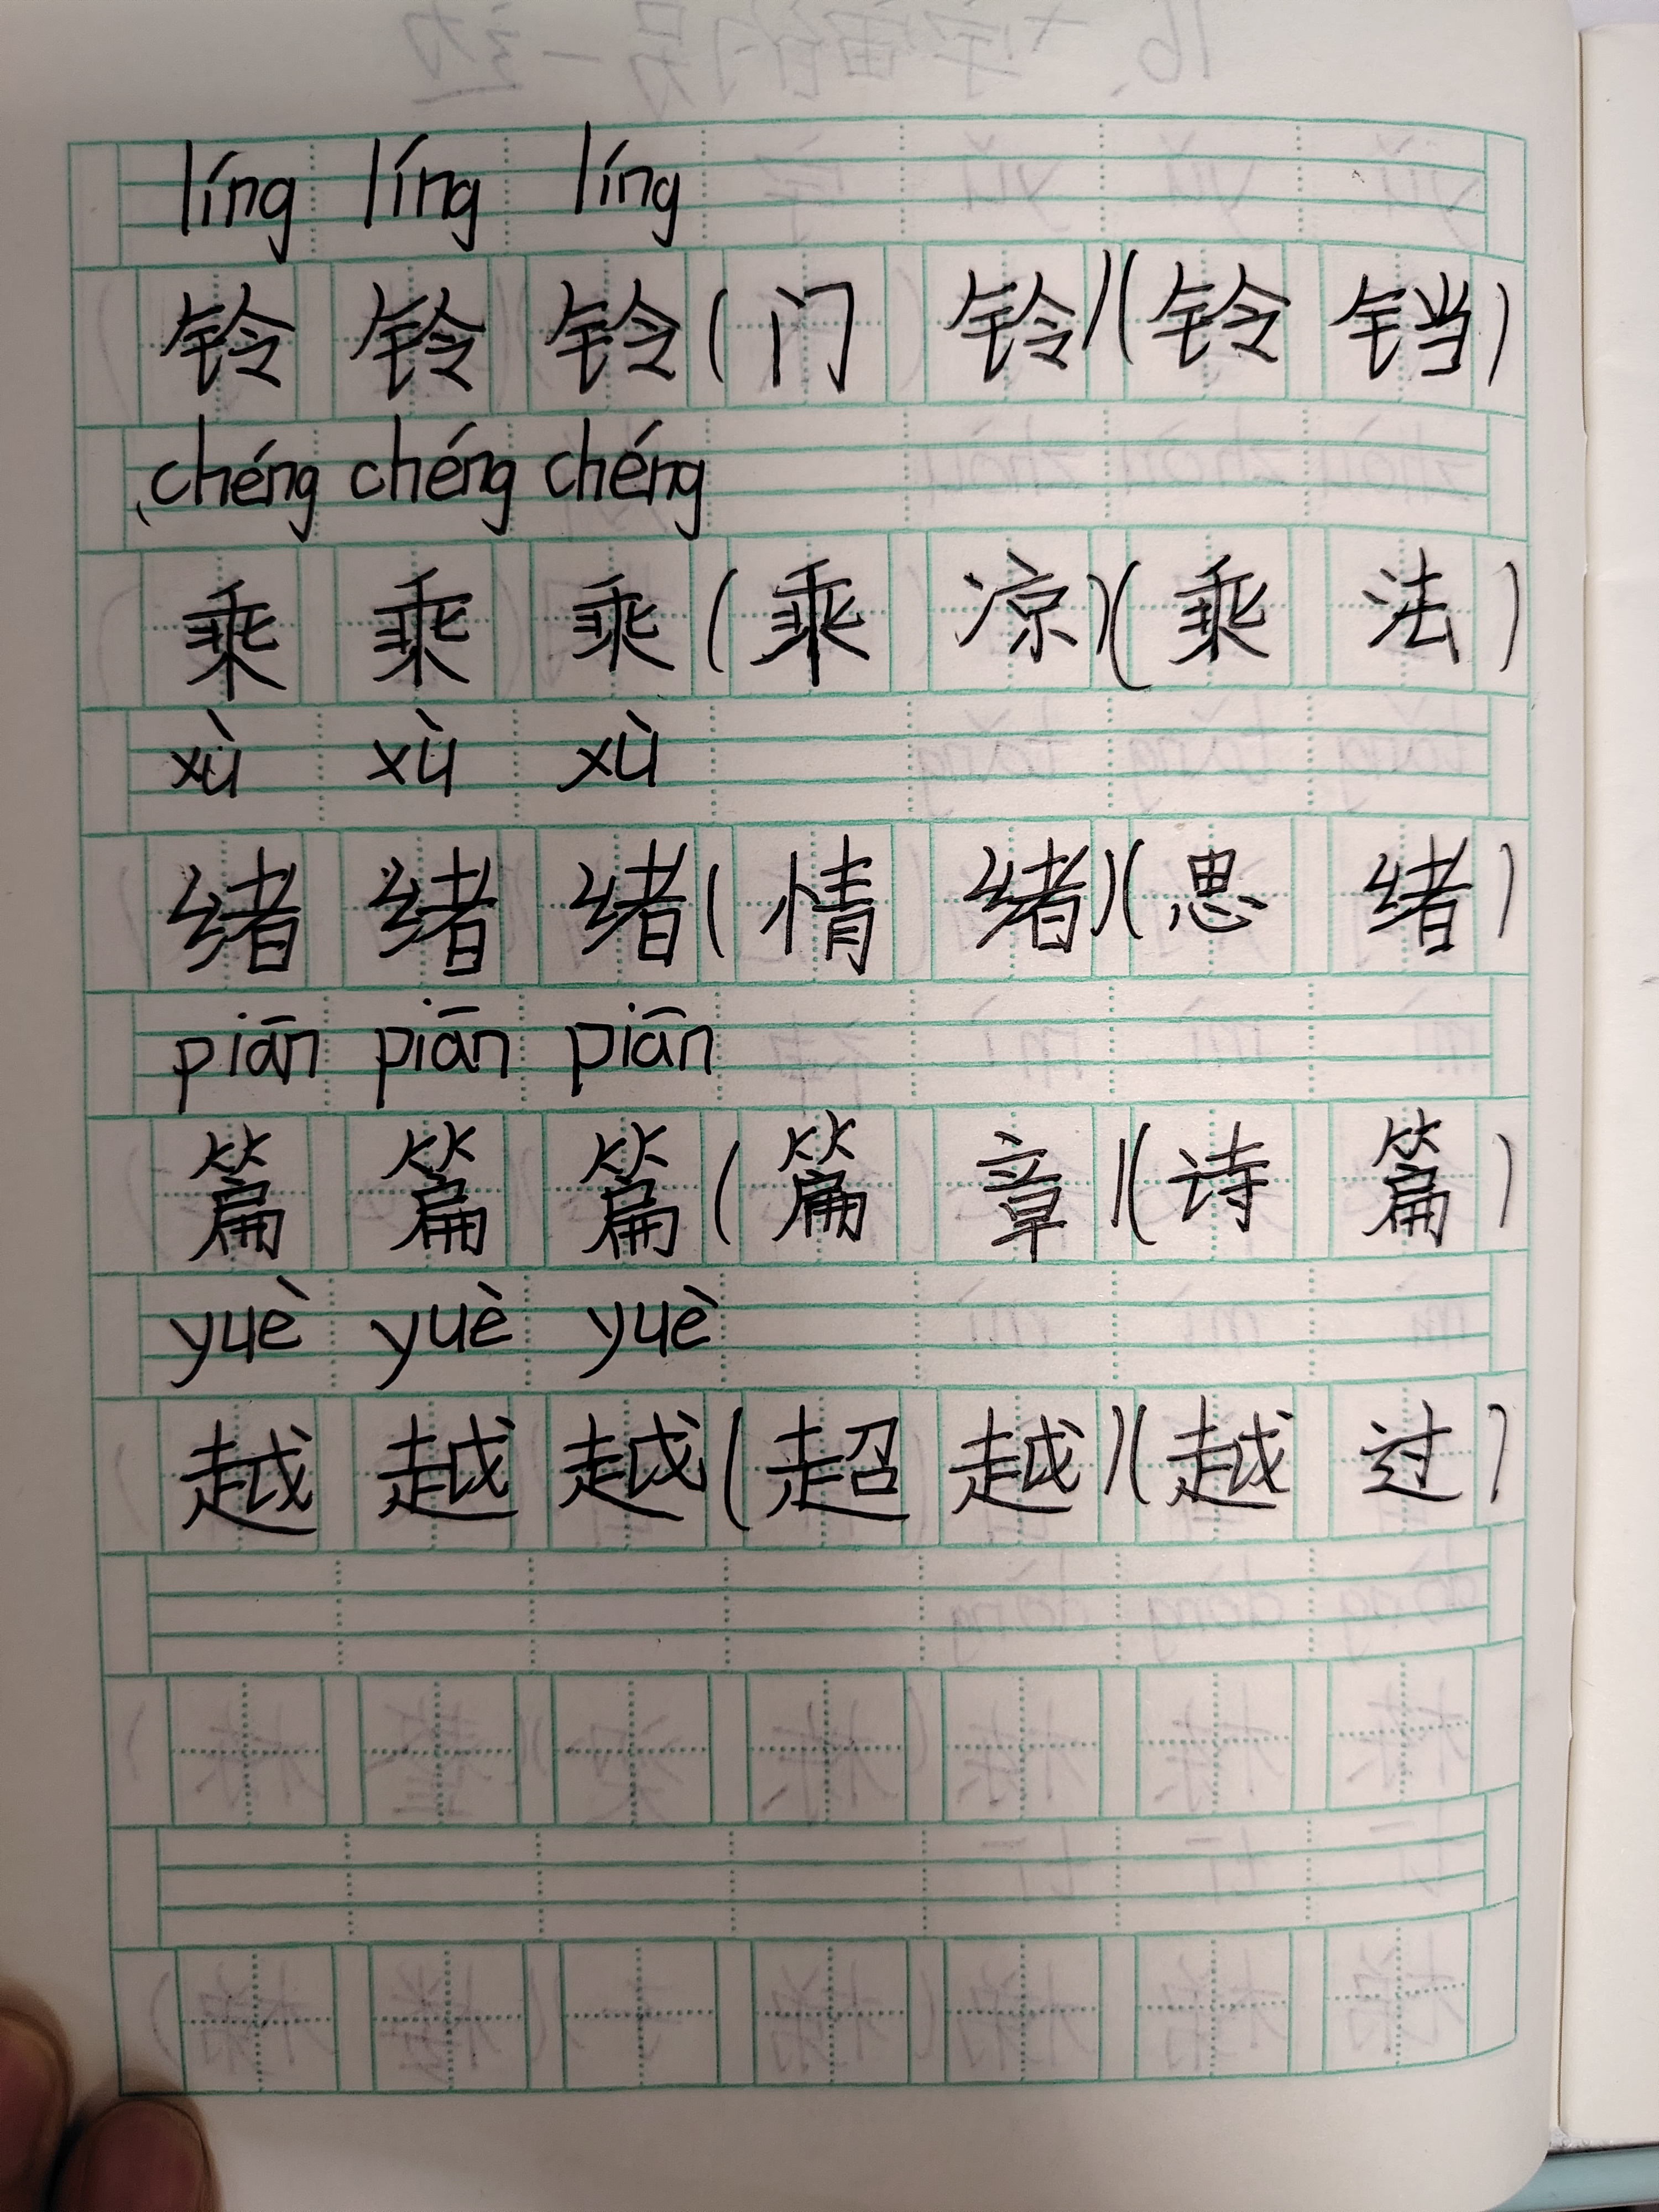 líng líng líng
铃 铃 铃 ( 门 铃 ) ( 铃 铛 )
chéng chéng chéng
乘 乘 乘 ( 乘 凉 ) ( 乘 法 )
xù xù xù
绪 绪 绪 ( 情 绪 ) ( 思 绪 )
piān piān piān
篇 篇 篇 ( 篇 章 ) ( 诗 篇 )
yuè yuè yuè
越 越 越 ( 超 越 ) ( 越 过 )